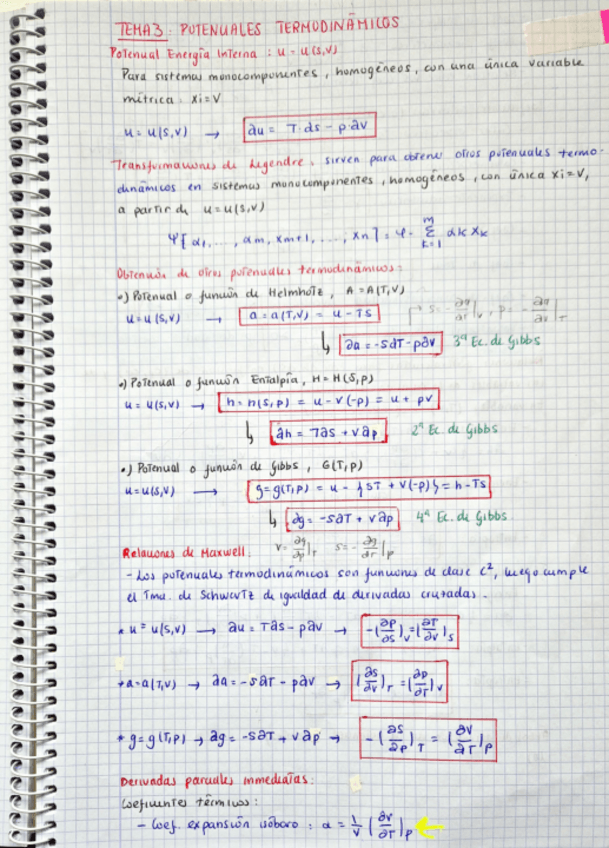 TEMA 3: POTENCIALES TERMODINÁMICOS
Potencial Energía Interna : u = u(s,v)
Para sistemas monocomponentes, homogéneos, con una única variable
métrica. Xi = V
u = u(s,v) → ∂u = T·ds - p·∂v
Transformaciones de Legendre. sirven para obtener otros potenciales termo-
dinámicos en sistemas monocomponentes, homogéneos, con única xi = V,
a partir de u = u(s,v)
Ψ[α1, ..., αm, Xm+1, ..., Xn] = φ - Σ(k=1, m) αk Xk
Obtención de otros potenciales termodinámicos:
•) Potencial o función de Helmholtz, A = A(T,V)
u = u(s,v) → a = a(T,v) = u - Ts s = -∂a/∂T|v, p = -∂a/∂v|T
↳ ∂a = -s∂T - p∂v 3ª Ec. de Gibbs
•) Potencial o función Entalpía, H = H(S,p)
u = u(s,v) → h = h(s,p) = u - v(-p) = u + pv
↳ ∂h = T∂s + v∂p 2ª Ec. de Gibbs
•) Potencial o función de Gibbs, G(T,p)
u = u(s,v) → g = g(T,p) = u - {sT + v(-p)} = h - Ts
↳ ∂g = -s∂T + v∂p 4ª Ec. de Gibbs
Relaciones de Maxwell. v = ∂g/∂p|T s = -∂g/∂T|p
- Los potenciales termodinámicos son funciones de clase C², luego cumple
el Tma. de Schwartz de igualdad de derivadas cruzadas.
* u = u(s,v) → ∂u = T∂s - p∂v → -(∂p/∂s)v = (∂T/∂v)s
* a = a(T,v) → ∂a = -s∂T - p∂v → (∂s/∂v)T = (∂p/∂T)v
* g = g(T,p) → ∂g = -s∂T + v∂p → -(∂s/∂p)T = (∂v/∂T)p
Derivadas parciales inmediatas:
Coeficientes térmicos:
- Coef. expansión isóbaro : α = 1/v (∂v/∂T)p ←